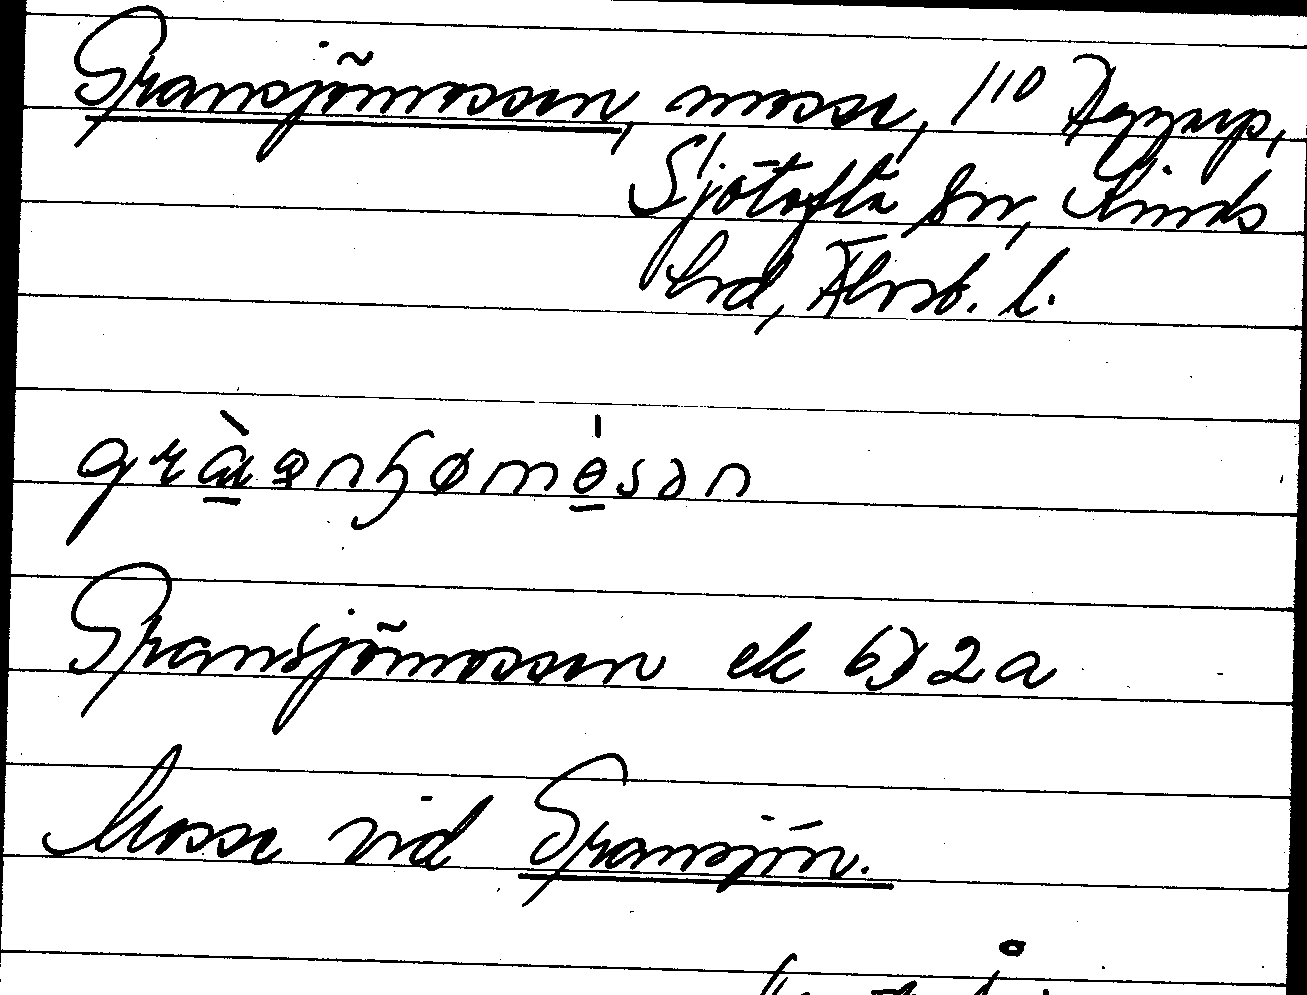 Gransjömossen, mosse, 1/10 Aggarp,
Sjötofta sn, Kinds
hd, Älvsb. l.
Gransjömossen ek 6D2a
Mosse vid Gransjön.